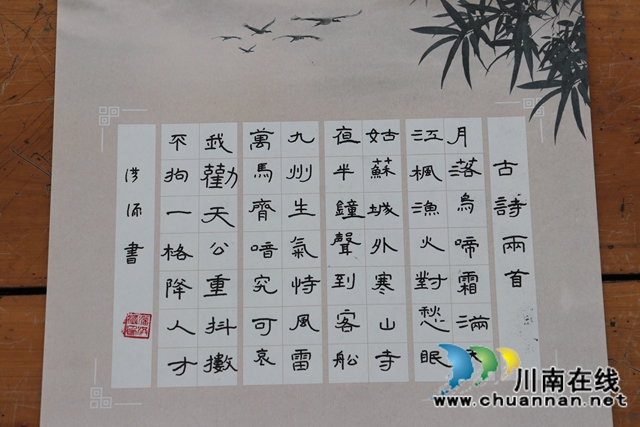 古詩兩首
月落烏啼霜滿天
江楓漁火對愁眠
姑蘇城外寒山寺
夜半鐘聲到客船
九州生氣恃風雷
萬馬齊喑究可哀
我勸天公重抖擻
不拘一格降人才
書
川南在线
www.chuannan.net